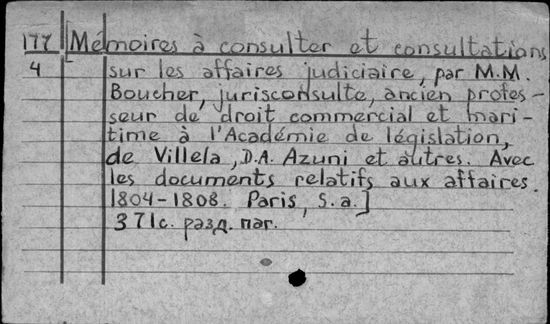 177 [Mémoires à consulter et consultations
4 sur les affaires judiciaire, par M.M.
Boucher, jurisconsulte, ancien profes-
seur de droit commercial et mari-
time à l'Académie de législation,
de Villela, D.A. Azuni et autres. Avec
les documents relatifs aux affaires.
1804-1808. Paris, S.a.]
371с. разд. паг.